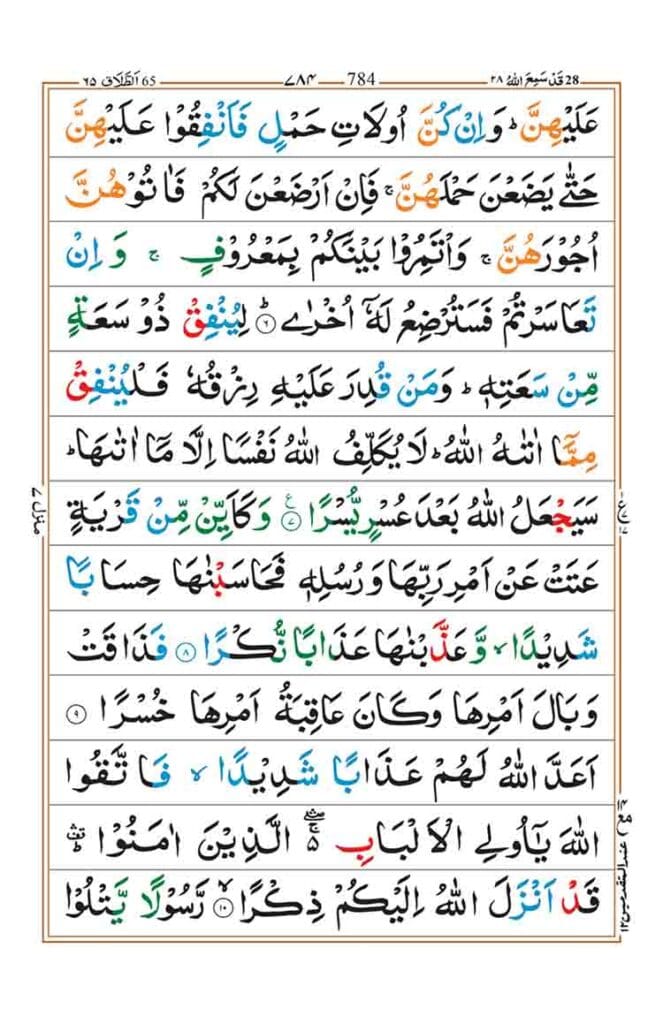 28 قَدْ سَمِعَ اللّٰهُ ٢٨ 784 ٧٨۴ 65 اَلطَّلَاق ٦٥
عَلَيْهِنَّ ؕ وَاِنْ كُنَّ اُولَاتِ حَمْلٍ فَاَنْفِقُوْا عَلَيْهِنَّ
حَتّٰى يَضَعْنَ حَمْلَهُنَّ ۚ فَاِنْ اَرْضَعْنَ لَكُمْ فَاٰتُوْهُنَّ
اُجُوْرَهُنَّ ۚ وَاْتَمِرُوْا بَيْنَكُمْ بِمَعْرُوْفٍ ۚ وَاِنْ
تَعَاسَرْتُمْ فَسَتُرْضِعُ لَهٗۤ اُخْرٰى ؕ‏﴿۶﴾ لِيُنْفِقْ ذُوْ سَعَةٍ
مِّنْ سَعَتِهٖ ؕ وَمَنْ قُدِرَ عَلَيْهِ رِزْقُهٗ فَلْيُنْفِقْ
مِمَّاۤ اٰتٰٮهُ اللّٰهُ ؕ لَا يُكَلِّفُ اللّٰهُ نَفْسًا اِلَّا مَاۤ اٰتٰٮهَا ؕ
سَيَجْعَلُ اللّٰهُ بَعْدَ عُسْرٍ يُّسْرًا ﴿۷﴾ ع وَكَاَيِّنْ مِّنْ قَرْيَةٍ
عَتَتْ عَنْ اَمْرِ رَبِّهَا وَرُسُلِهٖ فَحَاسَبْنٰهَا حِسَابًا
شَدِيْدًا ۙ وَّعَذَّبْنٰهَا عَذَابًا نُّكْرًا ﴿۸﴾ فَذَاقَتْ
وَبَالَ اَمْرِهَا وَكَانَ عَاقِبَةُ اَمْرِهَا خُسْرًا ﴿۹﴾
اَعَدَّ اللّٰهُ لَهُمْ عَذَابًا شَدِيْدًا ۙ فَاتَّقُوا
اللّٰهَ يٰۤاُولِى الْاَلْبَابِ ۛۖۚ ۵ الَّذِيْنَ اٰمَنُوْا ۛؕ
قَدْ اَنْزَلَ اللّٰهُ اِلَيْكُمْ ذِكْرًا ۙ‏﴿۱۰﴾ رَّسُوْلًا يَّتْلُوْا
منزل ٧